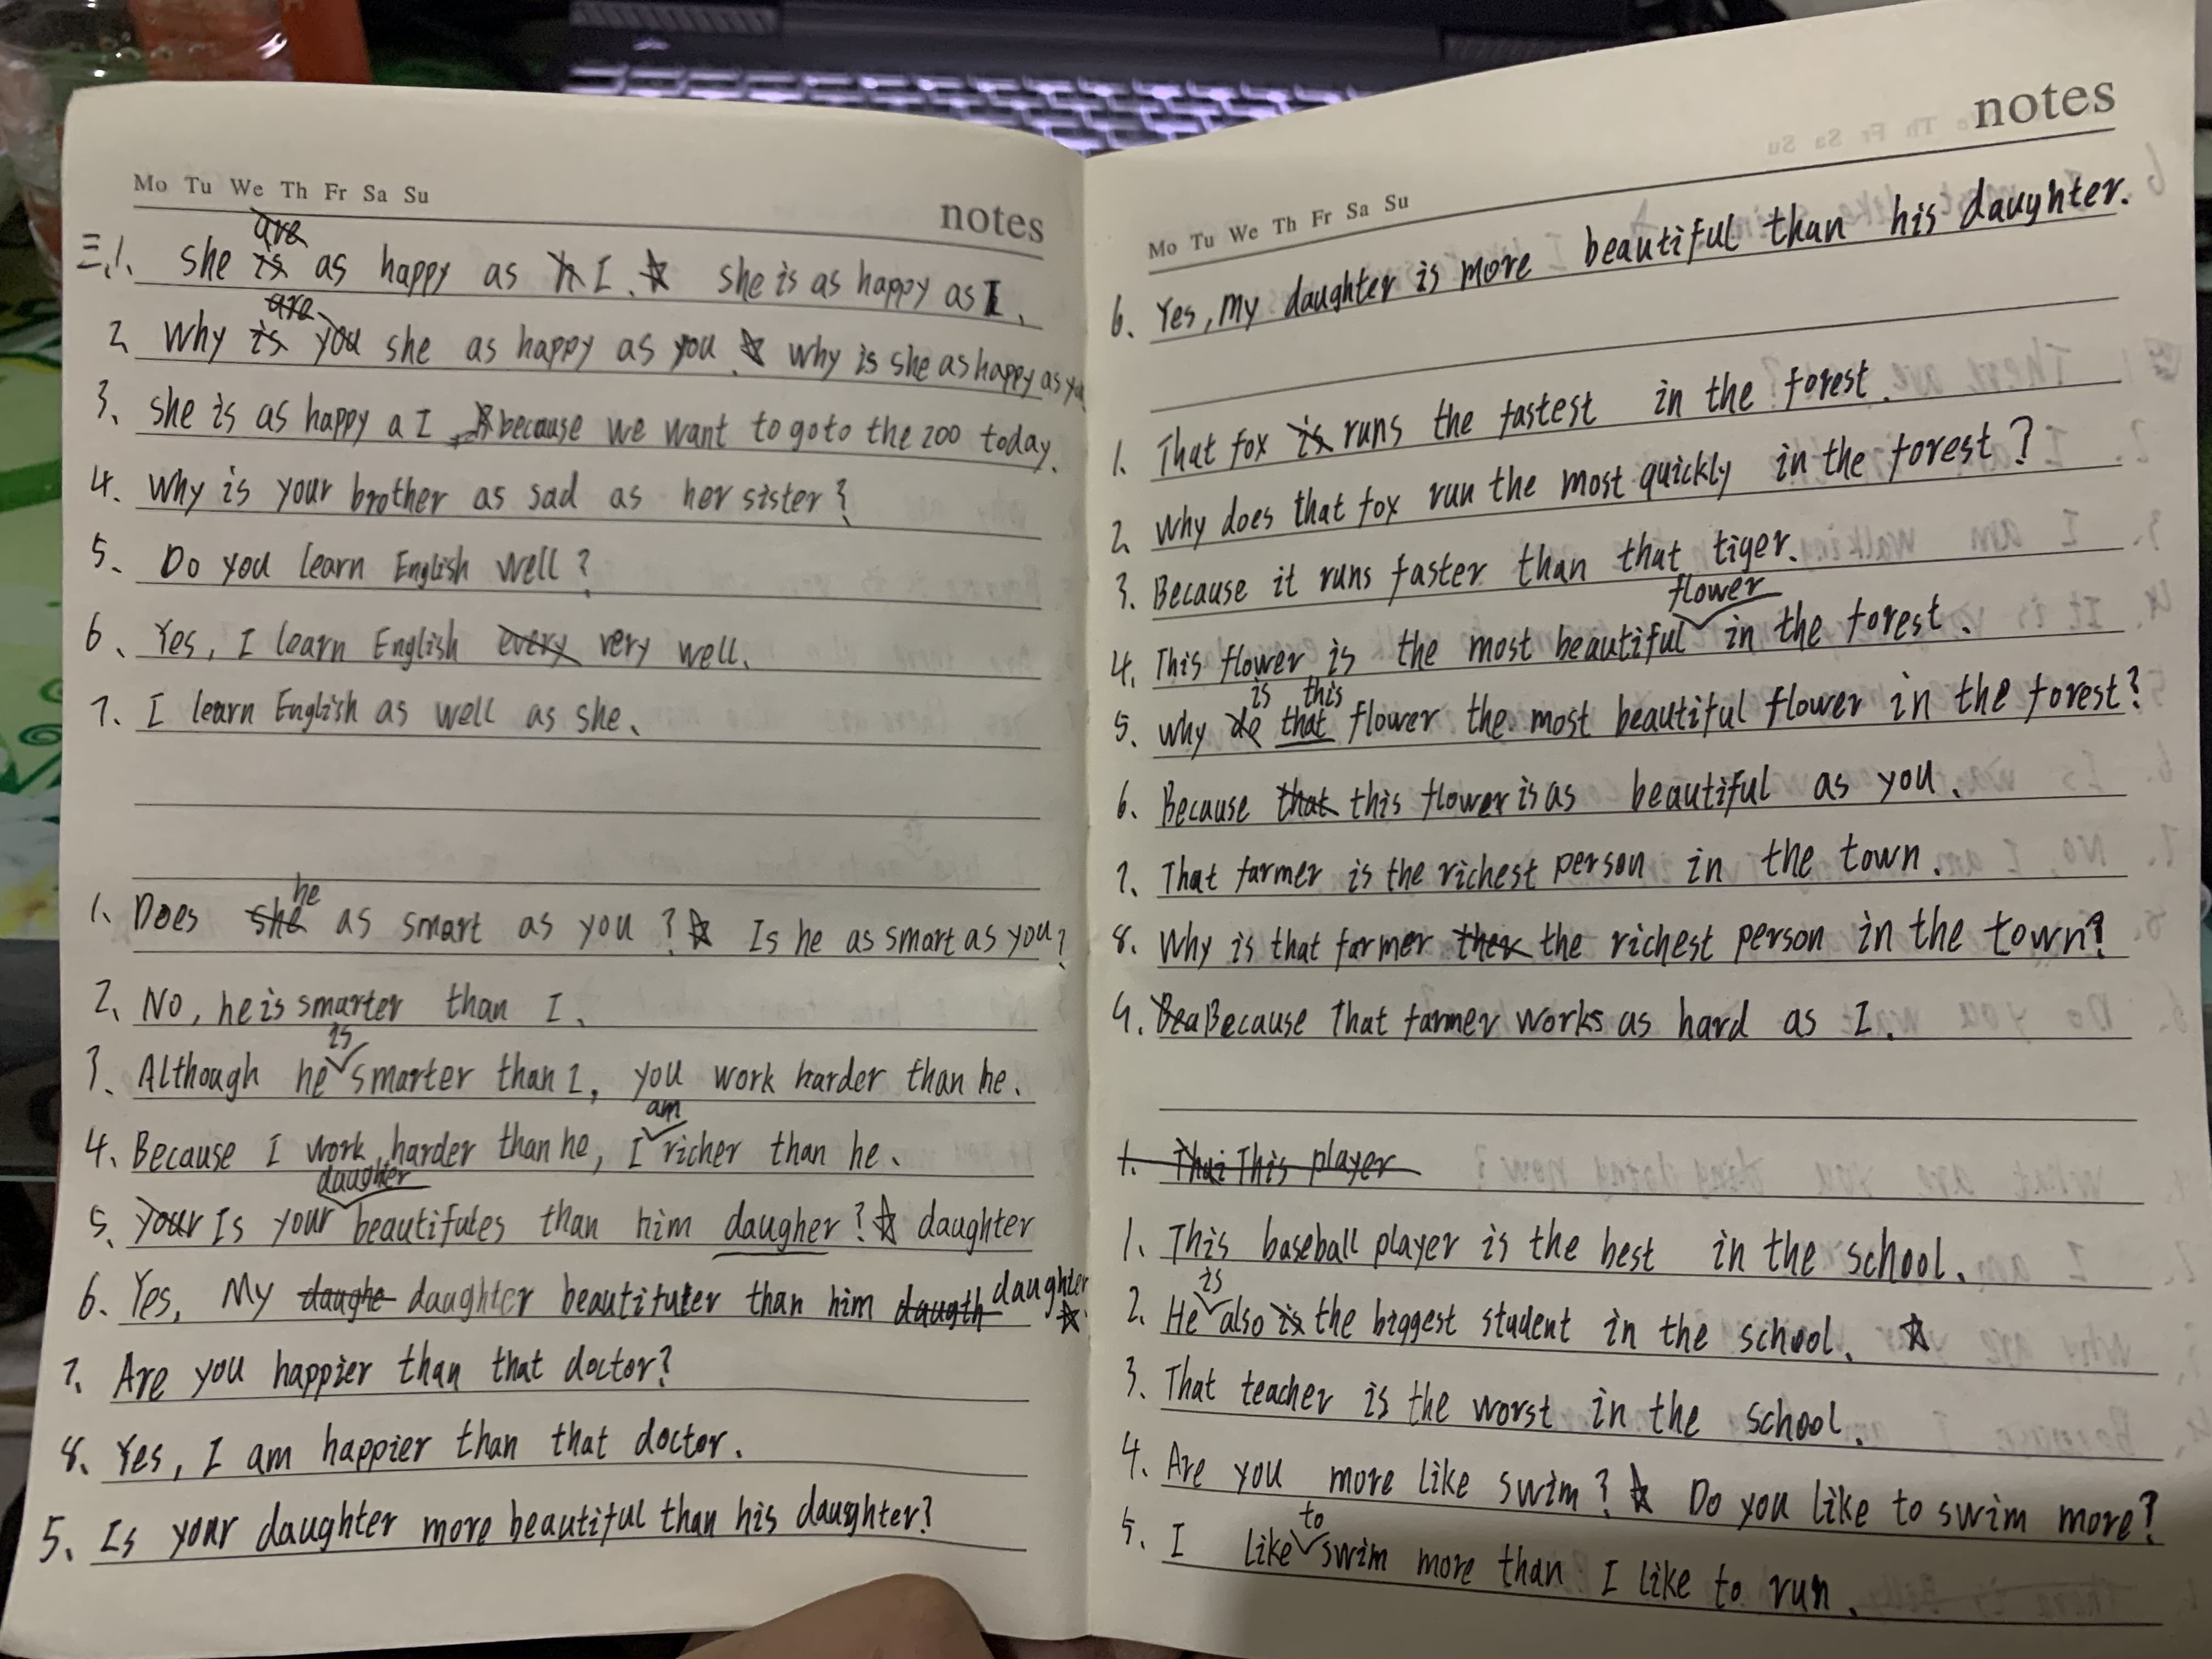 Mo Tu We Th Fr Sa Su
notes
are
三.1. she is as happy as h I. ☆ she is as happy as I.
are
2. Why is you she as happy as you. ☆ why is she as happy as you
3. she is as happy a I because we want to go to the zoo today.
4. Why is your brother as sad as her sister?
5. Do you learn English well?
6. Yes, I learn English every very well.
7. I learn English as well as she.
he
1. Does she as smart as you? ☆ Is he as smart as you?
2. No, he is smarter than I.
is
3. Although he smarter than I, you work harder than he.
am
4. Because I work harder than he, I richer than he.
daughter
5. your Is your beautifules than him daugher? ☆ daughter
6. Yes, My daughe daughter beautifuler than him daugth daughter ☆
7. Are you happier than that doctor?
8. Yes, I am happier than that doctor.
5. Is your daughter more beautiful than his daughter?
notes
Mo Tu We Th Fr Sa Su
6. Yes, my daughter is more beautiful than his daughter.
1. That fox is runs the fastest in the forest.
2. Why does that fox run the most quickly in the forest?
3. Because it runs faster than that tiger.
flower
4. This flower is the most beautiful in the forest.
is this
5. why de that flower the most beautiful flower in the forest?
6. Because that this flower is as beautiful as you.
7. That farmer is the richest person in the town.
8. Why is that farmer ther the richest person in the town?
9. Bea Because That farmer works as hard as I.
1. Thai This player
1. This baseball player is the best in the school.
is
2. He also is the biggest student in the school. ☆
3. That teacher is the worst in the school.
4. Are you more like swim? ☆ Do you like to swim more?
to
5. I like swim more than I like to run.